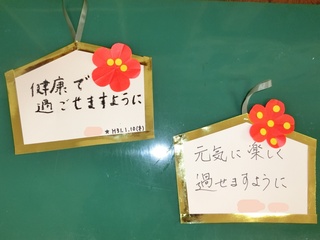 健康で
過ごせますように
元気に楽しく
過せますように